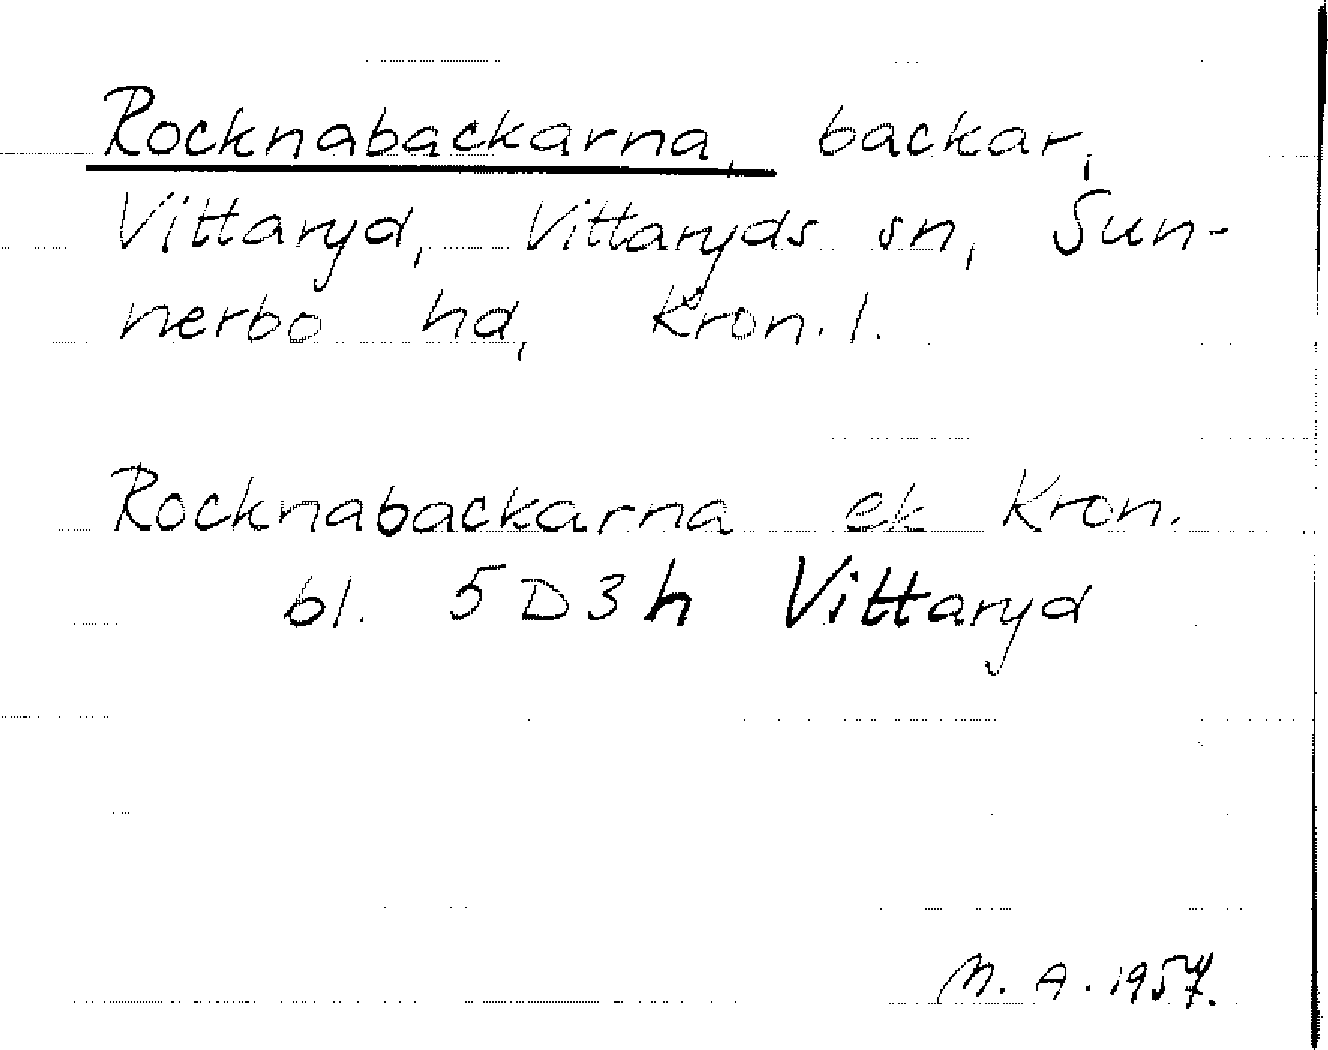 Rocknabackarna, backar,
Vittaryd, Vittaryds sn, Sun-
nerbo hd, Kron. l.
Rocknabackarna ek Kron.
bl. 5D3h Vittaryd
M. A. 1957.